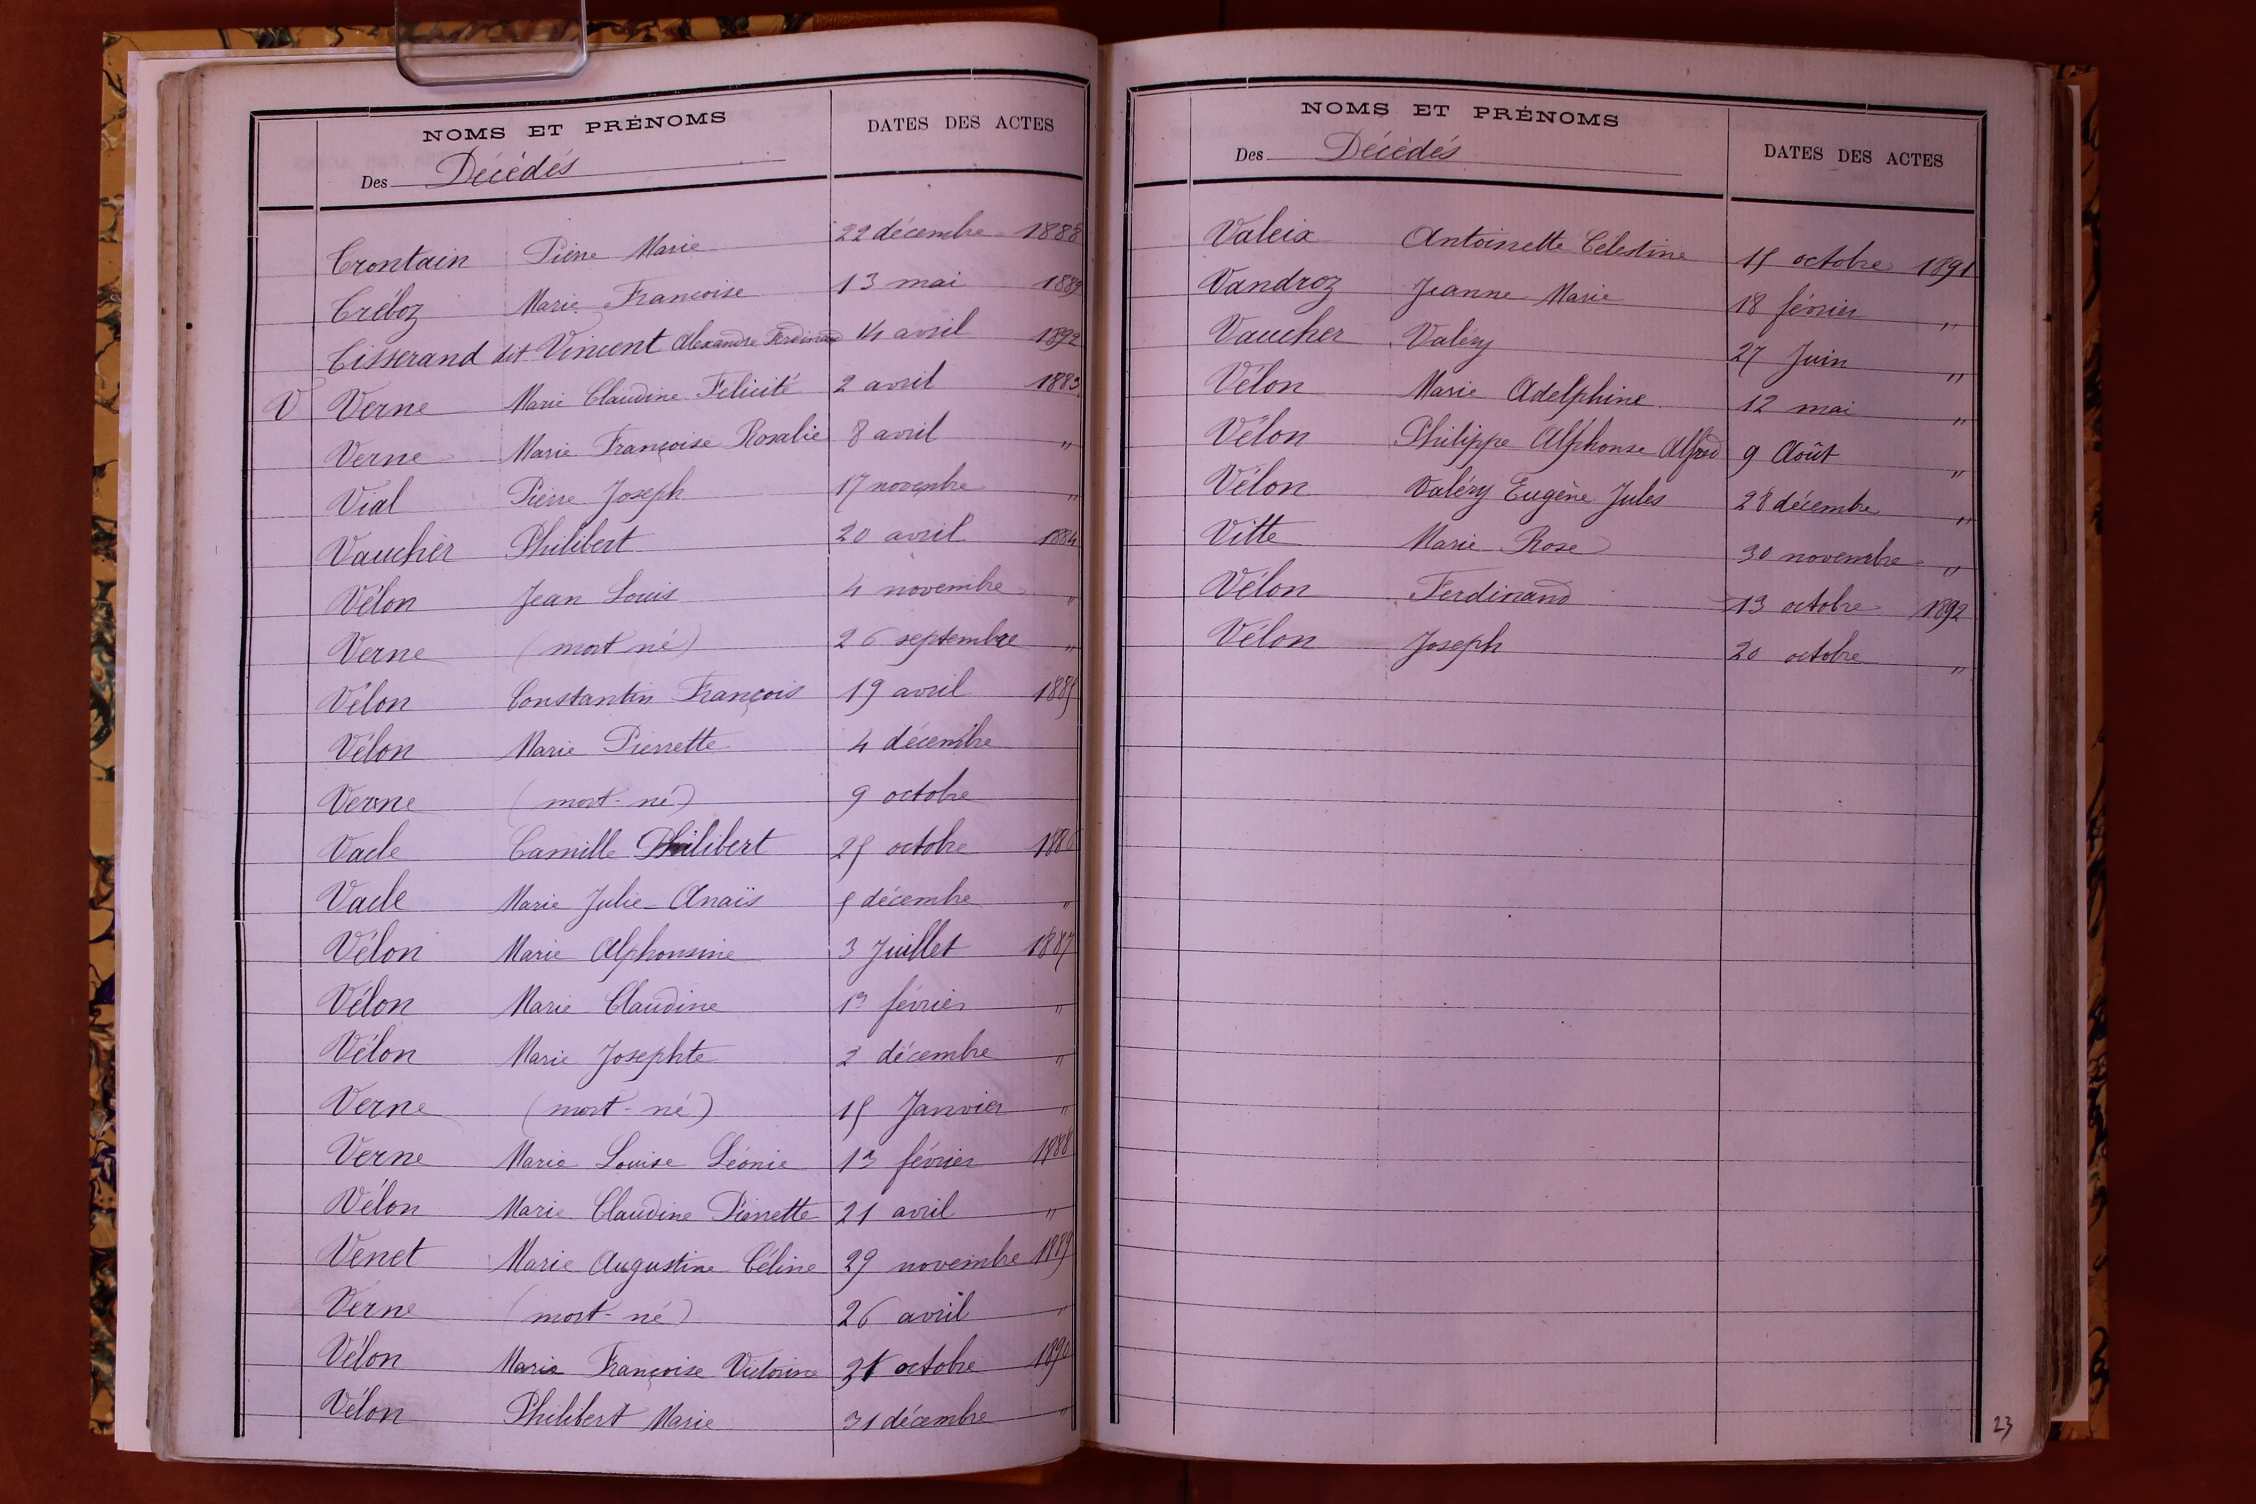 NOMS ET PRÉNOMS DATES DES ACTES
Des Décédés
Trontain Pierre Marie 22 décembre 1888
Tréboz Marie Françoise 13 mai 1889
Tisserand dit Vincent Alexandre Ferdinand 14 avril 1892
V Verne Marie Claudine Felicité 2 avril 1883
Verne Marie Françoise Rosalie 8 avril "
Vial Pierre Joseph 17 novembre "
Vaucher Philibert 20 avril 1884
Vélon Jean Louis 4 novembre "
Verne (mort né) 26 septembre "
Vélon Constantin François 19 avril 1885
Vélon Marie Pierrette 4 décembre
Verne (mort-né) 9 octobre
Vacle Camille Philibert 25 octobre 1886
Vacle Marie Julie Anaïs 5 décembre "
Vélon Marie Alphonsine 3 Juillet 1887
Vélon Marie Claudine 13 février "
Vélon Marie Josephte 2 décembre "
Verne (mort-né) 15 Janvier "
Verne Marie Louise Léonie 13 février 1888
Vélon Marie Claudine Pierrette 21 avril "
Venet Marie Augustine Céline 29 novembre 1889
Verne (mort-né) 26 avril "
Vélon Marie Françoise Victorine octobre 1890
Vélon Philibert Marie 31 décembre "
NOMS ET PRÉNOMS DATES DES ACTES
Des Décédés
Valeix Antoinette Célestine 15 octobre 1891
Vandroz Jeanne Marie 18 février "
Vaucher Valéry 27 Juin "
Vélon Marie Adelphine 12 mai "
Vélon Philippe Alphonse Alfred 9 Août "
Vélon Valéry Eugène Jules 28 décembre "
Vitte Marie Rose 30 novembre "
Vélon Ferdinand 13 octobre 1892
Vélon Joseph 20 octobre "
23